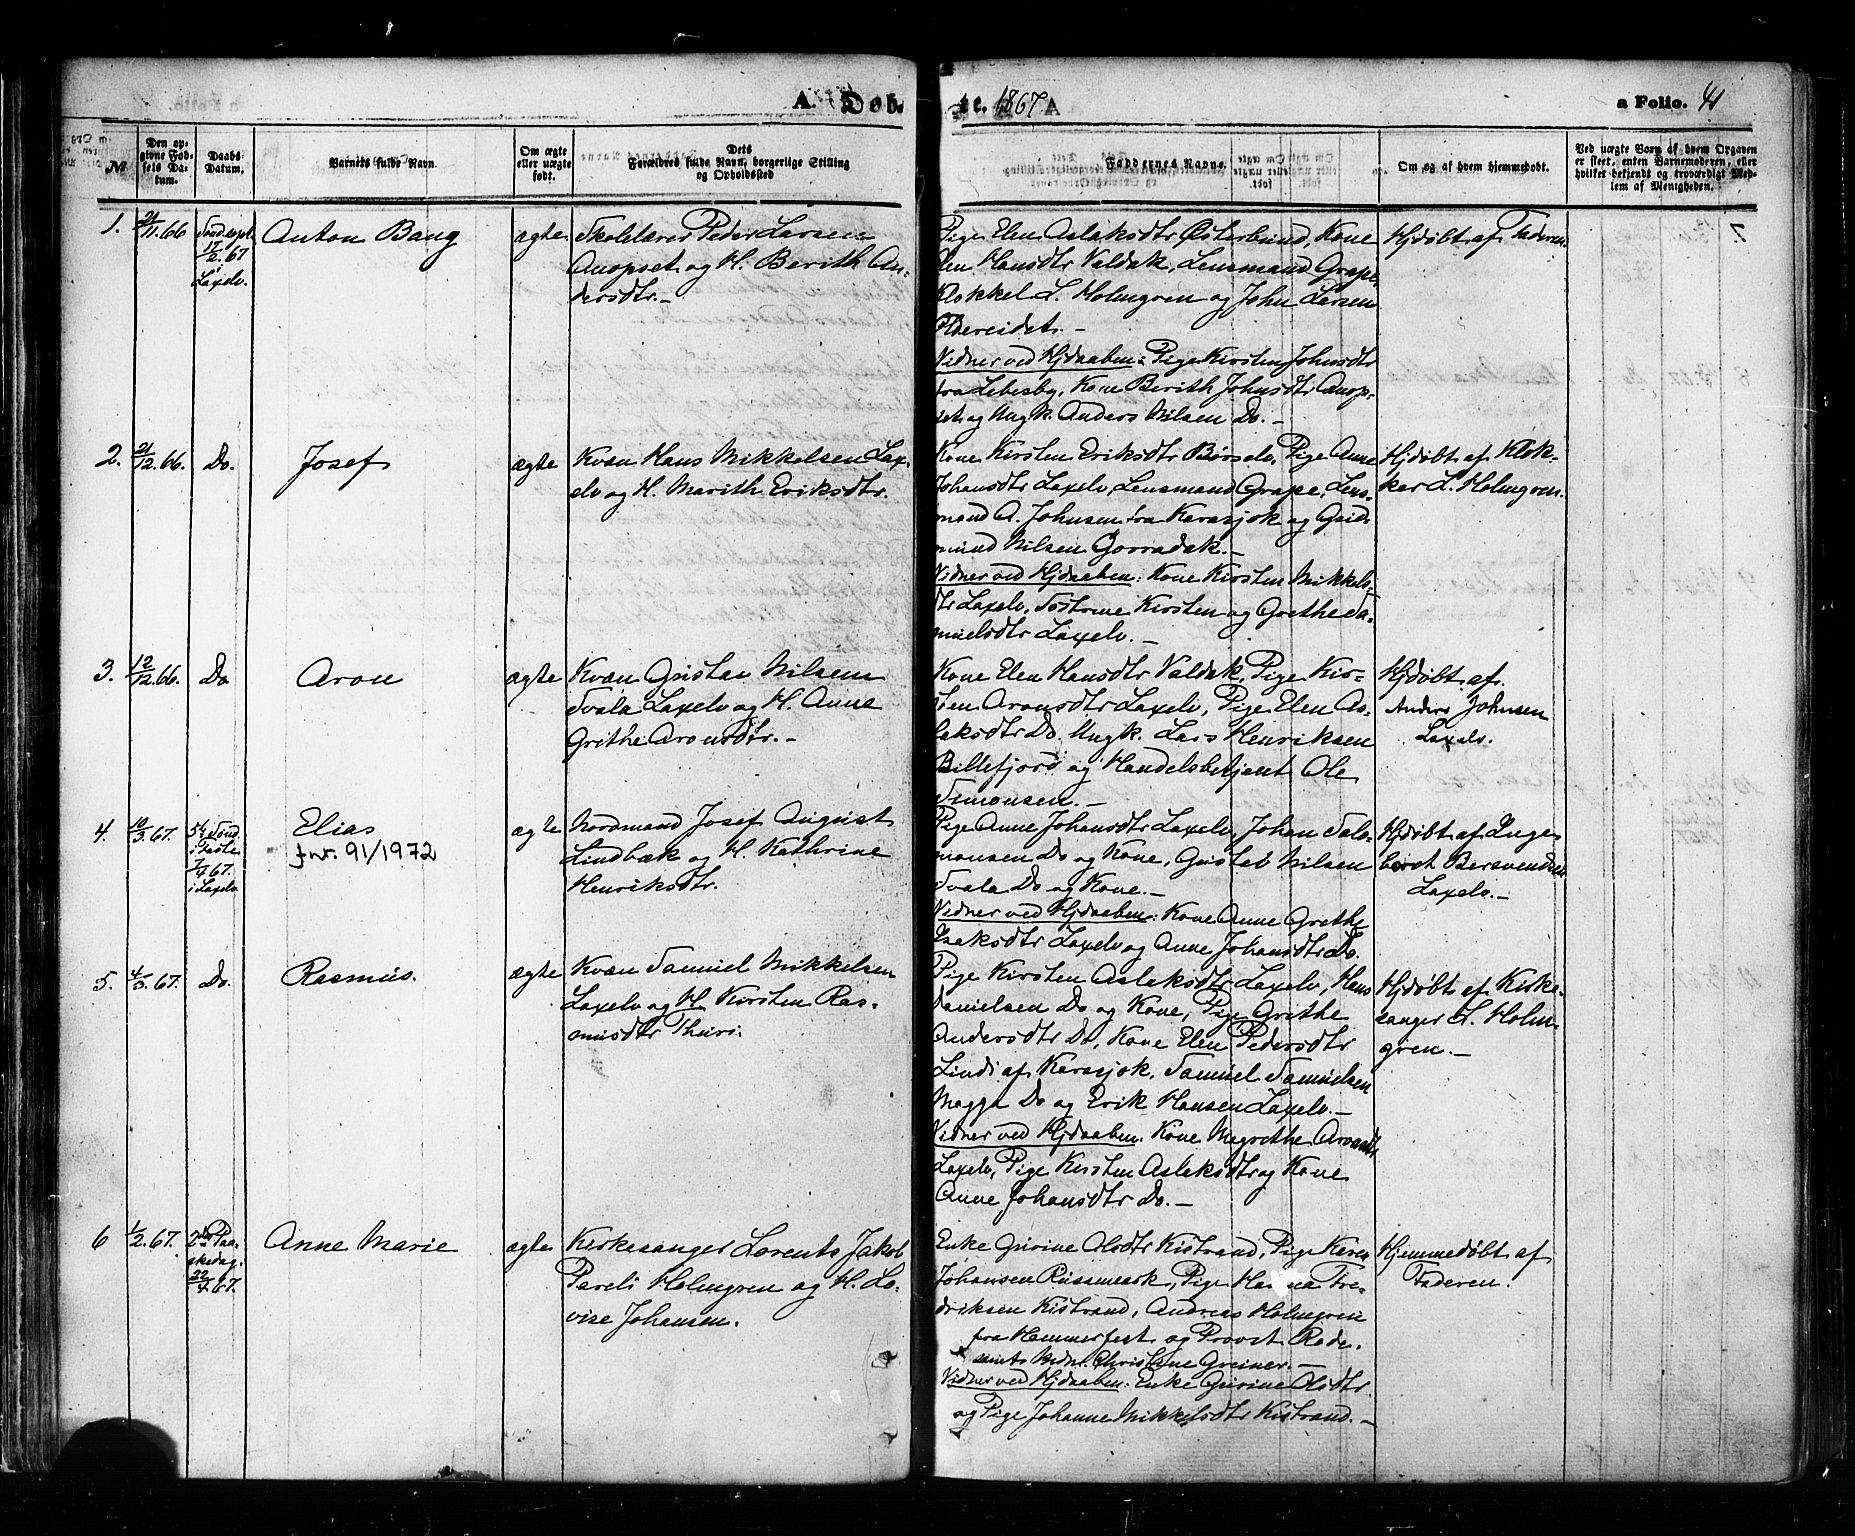 A. Døb-
te. 1867. A
a Folio. 41
No
Den op-
givne Fød-
sels Da-
tum.
Daabs
Datum.
Barnets fulde Navn.
Om ægte
eller uægte
født.
Dets
Forældres fulde Navn, borgerlige Stilling
og Opholdssted
Faddernes Navne.
Om og af hvem hjemmedøbt.
Ved uægte Børn af hvem Opgaven
er skeet, enten Barnemoderen, eller
hvilket bekjendt og troværdigt Med-
lem af Menigheden.
1.
21/11. 66
17/2. 67
i
Laxelv.
Anton Bang
ægte
Skolelærer Peder Larsen
Anopset og H. Berith An-
dersdtr.-
Pige Elen Aslaksdtr Østerbund, Kone
Elen Hansdtr Valdak, Lensmand Grape,
Klokker L. Holmgren og John Larsen
Vidner ved Hjdaaben: Pige Kirsten Johnsdtr
fra Lebesby, Kone Berith Johnsdtr Anop-
set og Ungk. Anders Nilsen Do. -
Hjdøbt af Faderen
2.
21/12. 66.
Do.
Josef
ægte
Kvæn Hans Mikkelsen Lax-
elv og H. Marith Eriksdtr.
Kone Kirsten Eriksdtr Børselv, Pige Anne
Johansdtr Laxelv, Lensmand Grape, Lens-
mand A. Johnsen fra Karasjok og Gud-
mund Nilsen Gorradak. -
Vidner ved Hjdaaben: Kone Kirsten Mikkels-
dtr Laxelv, Søstrene Kirsten og Grethe Sa-
muelsdtr Laxelv. -
Hjdøbt af Klok-
ker L. Holmgren.
3.
12/12. 66.
Do
Aron
ægte
Kvæn Gustav Nilsen
Svala Laxelv og H. Anne
Grethe Aronsdtr. -
Kone Elen Hansdtr Valdak, Pige Kir-
sten Aronsdtr Laxelv, Pige Elen As-
laksdtr Do. Ungk. Lars Henriksen
Billefjord og Handelsbetjent Ole
Simonsen. -
Hjdøbt af
Anders Johnsen
Laxelv.
4.
10/3. 67.
5te Sønd.
i Faste
7/4 67.
i Laxelv.
Elias
fnr. 91/1972
ægte
Nordmand Josef August
Lindbæk og H. Kathrine
Henriksdtr.
Pige Anne Johansdtr Laxelv, Johan Salo-
monsen Do og Kone, Gustav Nilsen
Svala Do og Kone. -
Vidner ved Hjdaaben: Kone Anne Grethe
Isaksdtr Laxelv og Anne Johansdtr Do.
Hjdøbt af Inge-
Laxelv. -
5.
4/3. 67.
Do.
Rasmus.
ægte
Kvæn Samuel Mikkelsen
Laxelv og H. Kirsten Ras-
musdtr Thuri.
Pige Kirsten Aslaksdtr Laxelv, Hans
Danielsen Do og Kone, Pige Grethe
Andersdtr Do, Kone Elen Pedersdtr
Lindi af Karasjok, Samuel Samuelsen
Magga Do og Erik Hansen Laxelv. -
Vidner ved Hjdaaben: Kone Magrethe Aronsdtr
Laxelv, Pige Kirsten Aslaksdtr og Kone
Anne Johansdtr Do. -
Hjdøbt af Kirke-
sanger L. Holm-
gren. -
6
1/2. 67.
2den Paa-
skedag.
22/4 67.
Anne Marie
ægte
Kirkesanger Lorents Jakob
Pareli Holmgren og H. Lo-
vise Johansen.
Enke Gurine Olsdtr Kistrand, Pige Karen
Johansen Russmark, Pige Hanna Fre-
driksen Kistrand, Andreas Holmgren
fra Hammerfest og Provst Rode.
samt Mdm. Christine Greiner. -
Vidner ved Hjdaaben: Enke Gurine Olsdtr
og Pige Johanne Mikkelsdtr Kistrand. -
Hjemmedøbt af
Faderen.
7.